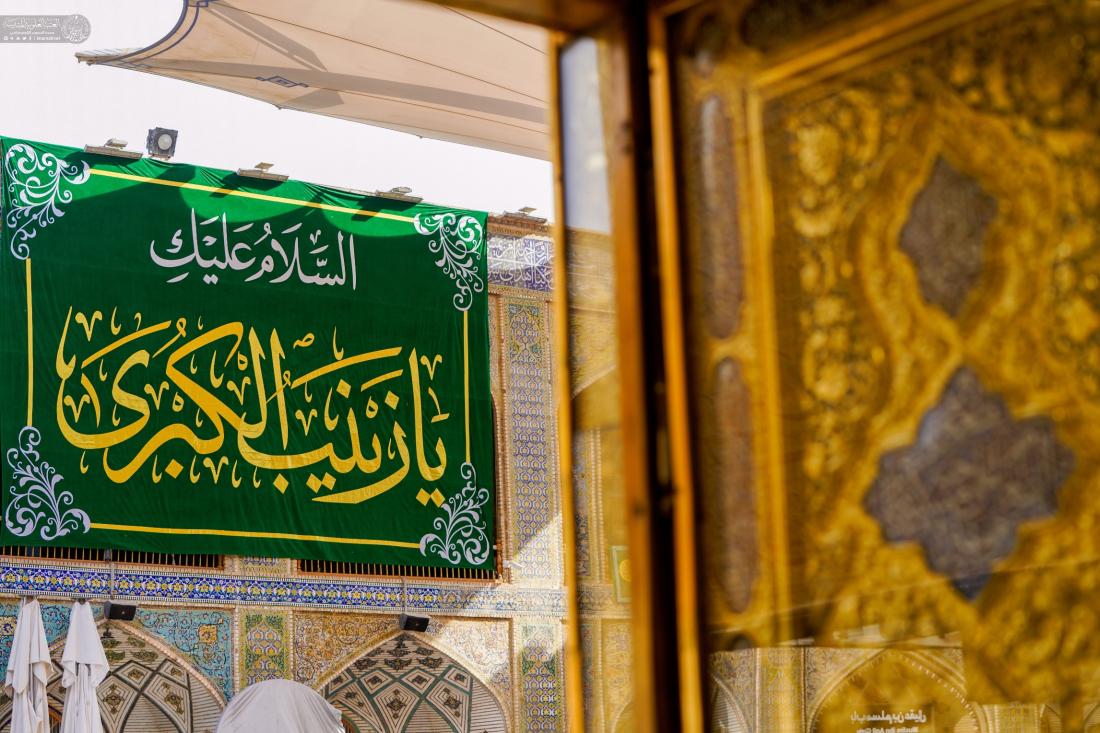 السَّلَامُ عَلَيْكِ
يَا زَيْنَبُ الْكُبْرَىٰ